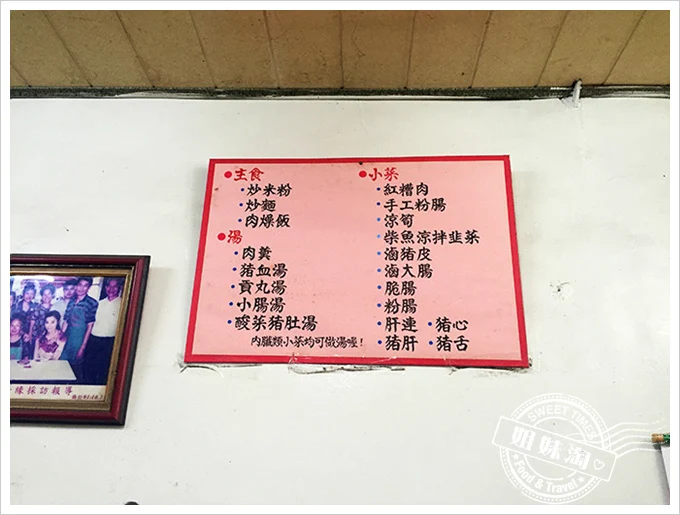 ●主食
•炒米粉
•炒麵
•肉燥飯
●湯
•肉羹
•豬血湯
•貢丸湯
•小腸湯
•酸菜豬肚湯
內臟類小菜均可做湯喔!
●小菜
•紅糟肉
•手工粉腸
•涼筍
•柴魚涼拌韭菜
•滷豬皮
•滷大腸
•脆腸
•粉腸
•肝連 •豬心
•豬肝 •豬舌
採訪報導
SWEET TIMES
姐妹淘
Food & Travel